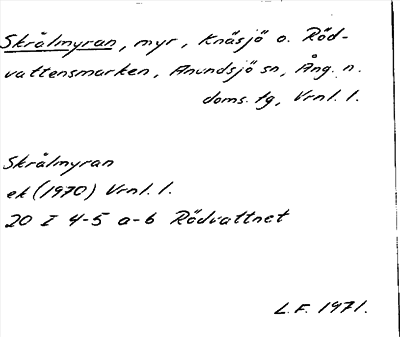 Skrålmyran, myr, Knäsjö o. Röd-
vattensmarken, Anundsjö sn, Ång. n.
doms. fg, Vrnl. l.
Skrålmyran
ek (1970) Vrnl. l.
20 I 4-5 a-b Rödvattnet
L.F. 1971.